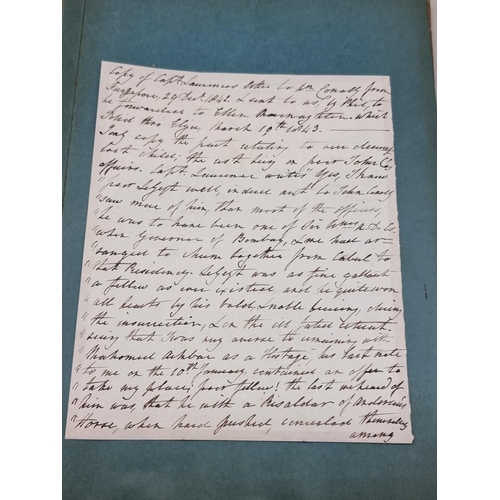 Copy of Capt. Lawrence's letter to Mr Conolly from
Ferozepore, 29 Decr. 1842. Sent to us, by Phil, to
be forwarded to Ellen Macnaghten. which
I did thro
March 19th 1843.
I only copy the part relating to our
lost Child; the rest being on poor John C's
affairs. Capt. Lawrence writes "Yes, I knew
"poor LeGeyt well, indeed next to John Conolly
"saw more of him, than most of the officers,
"he was to have been one of Sir Wms A.D.Cs.
"when Governor of Bombay, & we had ar-
"ranged to chum together from Cabul to
"that Presidency. LeGeyt was as fine gallant
"a fellow as ever existed and he quite won
"all hearts by his bold, & noble bearing, during
"the insurrection, & on the ill fated retreat.
"seeing that I was averse to remaining with
"Mahomed Ackbar as a Hostage, his last note
"to me on the 10th January contained an offer to
"take my place; poor fellow! the last we heard of
"him was, that he with a Risaldar of Anderson's
"Horse, when hard pushed, concealed themselves
among